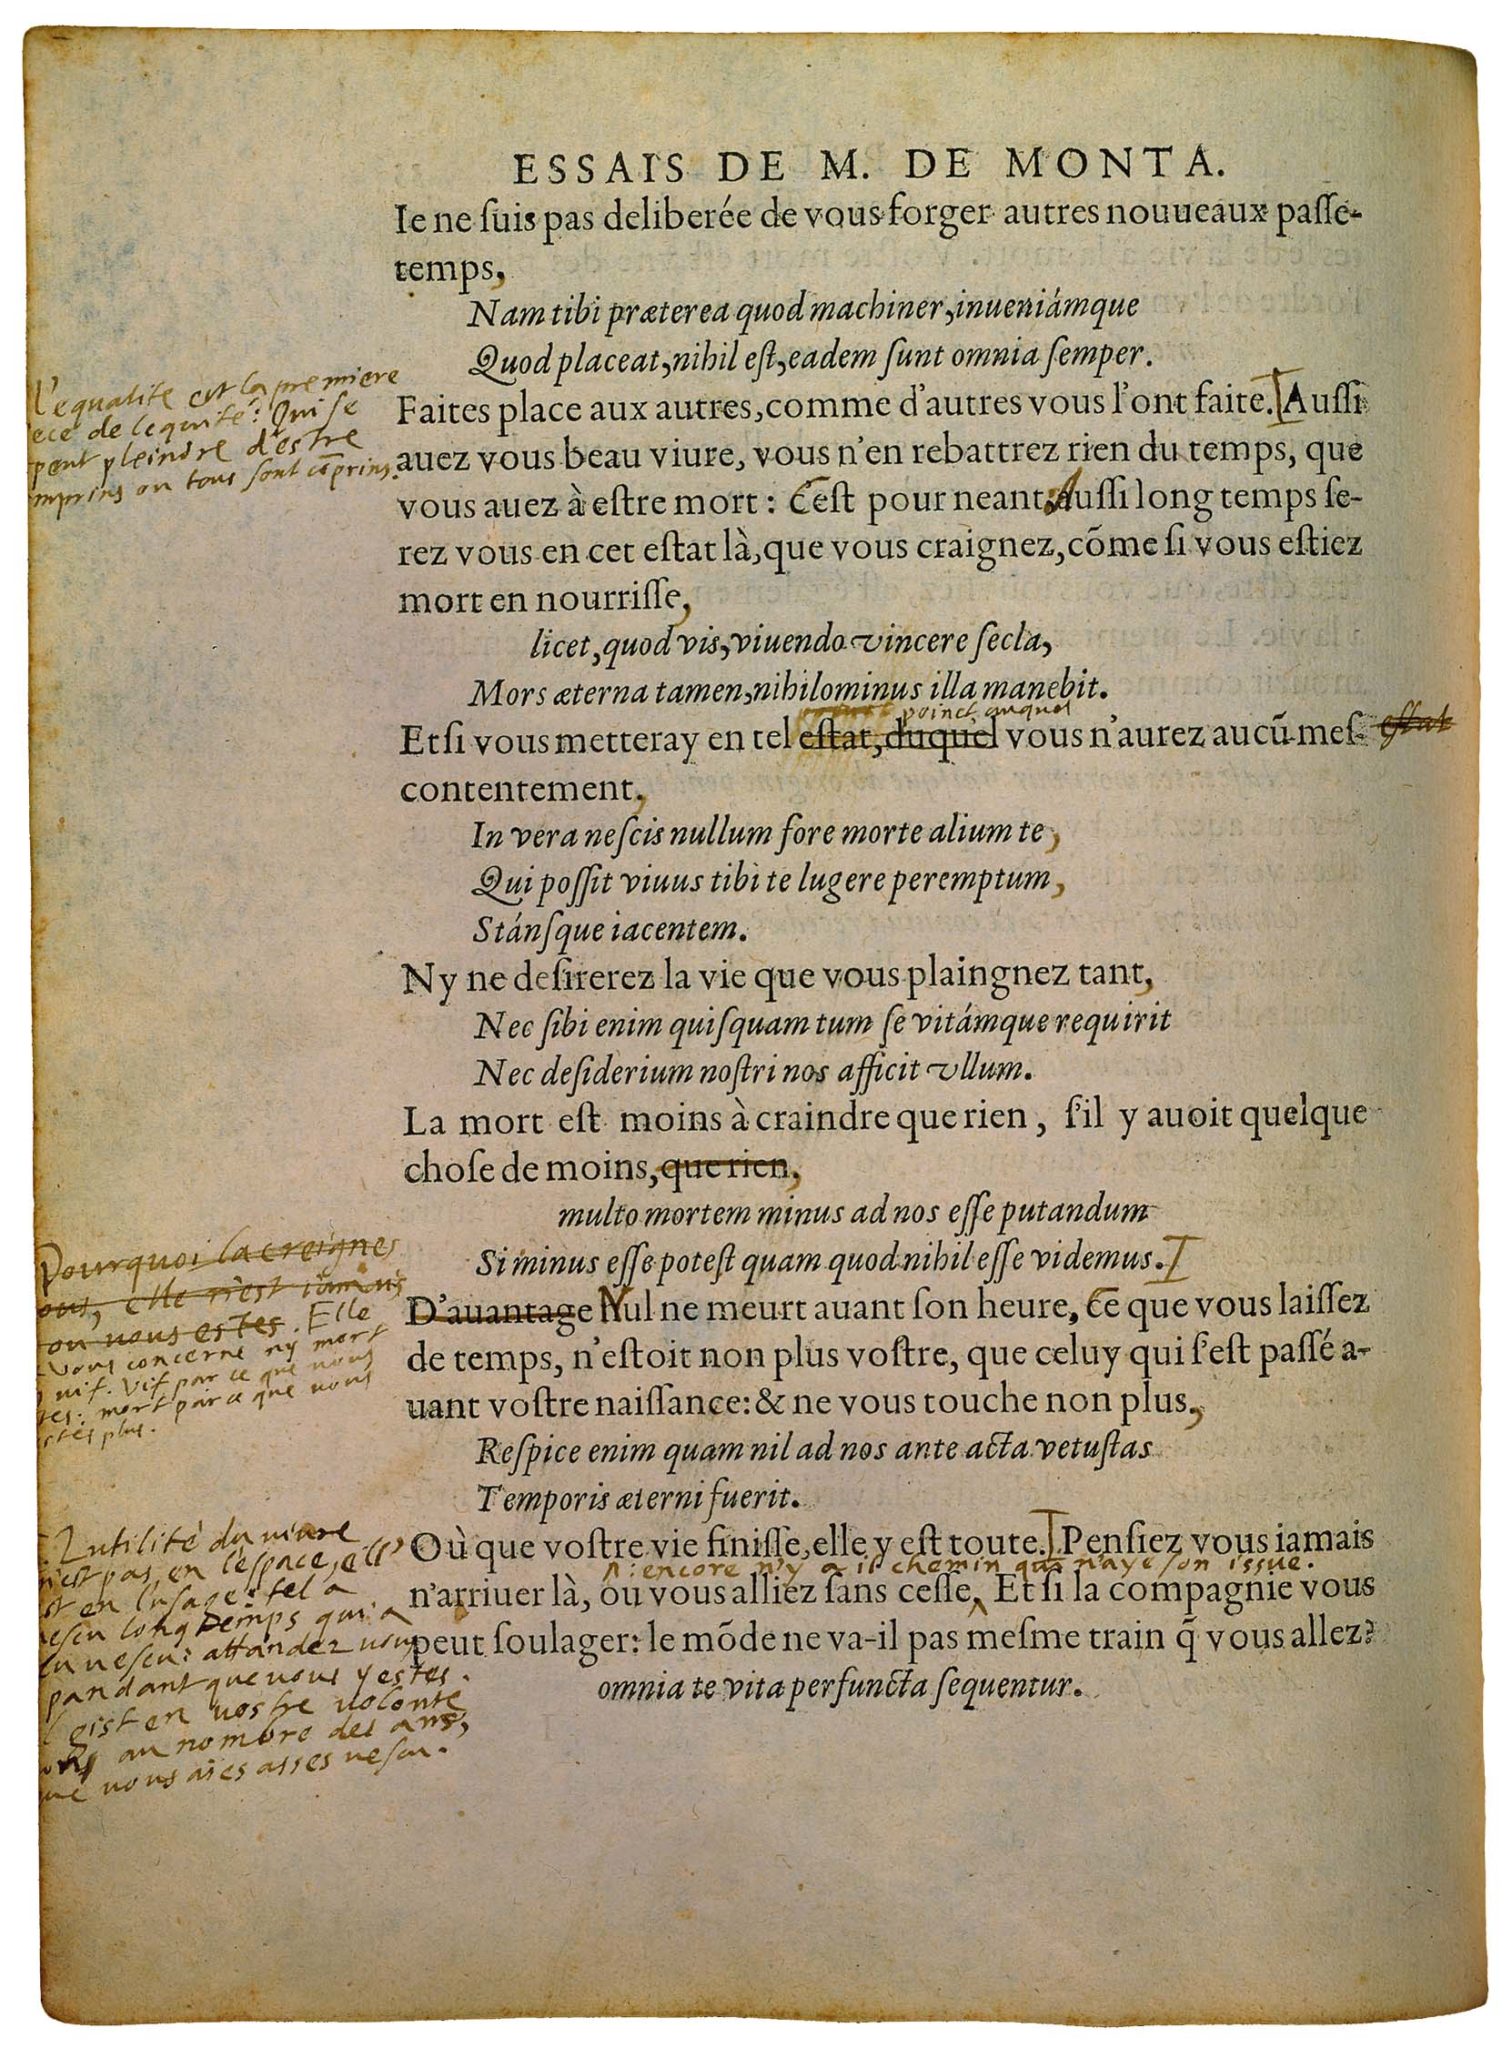 ESSAIS DE M. DE MONTA.
Ie ne ſuis pas deliberée de vous forger autres nouueaux paſſe-
temps,
Nam tibi præterea quod machiner, inueniámque
Quod placeat, nihil eſt, eadem ſunt omnia ſemper.
L'equalité est la premiere
ece de lequité: Qui se
peut pleindre d'estre
mprins ou tous sont cōprins.
Faites place aux autres, comme d'autres vous l'ont faite. Auſſi
auez vous beau viure, vous n'en rebattrez rien du temps, que
vous auez à eſtre mort: C'eſt pour neant: Auſſi long temps ſe-
rez vous en cet eſtat là, que vous craignez, cõme ſi vous eſtiez
mort en nourriſſe,
licet, quod vis, viuendo vincere ſecla,
Mors æterna tamen, nihilominus illa manebit.
poinct auquel
Et ſi vous metteray en tel eſtat, duquel vous n'aurez aucũ meſ-
estat
contentement,
In vera neſcis nullum fore morte alium te,
Qui poſſit viuus tibi te lugere peremptum,
Stánſque iacentem.
Ny ne deſirerez la vie que vous plaingnez tant,
Nec ſibi enim quiſquam tum ſe vitámque requirit
Nec deſiderium noſtri nos afficit vllum.
La mort eſt moins à craindre que rien, ſ'il y auoit quelque
choſe de moins, que rien,
multo mortem minus ad nos eſſe putandum
Si minus eſſe poteſt quam quod nihil eſſe videmus.
Pourquoi la creignes
ous, elle n'est iamais
ou vous estes. Elle
vous concerne ny mort
vif. Vif par ce que vous
tes: mort par ce que vous
stes plus.
D'auantage Nul ne meurt auant ſon heure, Ce que vous laiſſez
de temps, n'eſtoit non plus voſtre, que celuy qui ſ'eſt paſſé a-
uant voſtre naiſſance: & ne vous touche non plus,
Reſpice enim quam nil ad nos ante acta vetuſtas
Temporis æterni fuerit.
L'utilité du uiure
n'est pas en l'espace, ell'
st en l'usage: tel a
escu long temps qui a
u uescu: attandez vous
pandant que vous y estes.
gist en vostre volonté
au nombre des ans,
ue vous aies asses uescu.
Où que voſtre vie finiſſe, elle y eſt toute. Penſiez vous iamais
encore n'y a il chemin qui n'aye son issue.
n'arriuer là, ou vous alliez ſans ceſſe, Et ſi la compagnie vous
peut ſoulager: le mõde ne va-il pas meſme train q̃ vous allez?
omnia te vita perfuncta ſequentur.